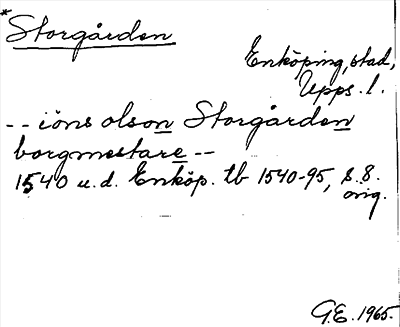 * Storgården
Enköping, stad,
Upps. l.
-- iöns olson Storgården
borgmestare --
1540 u. d. Enköp. tb 1540-95, s. 8.
orig.
G.E. 1965.